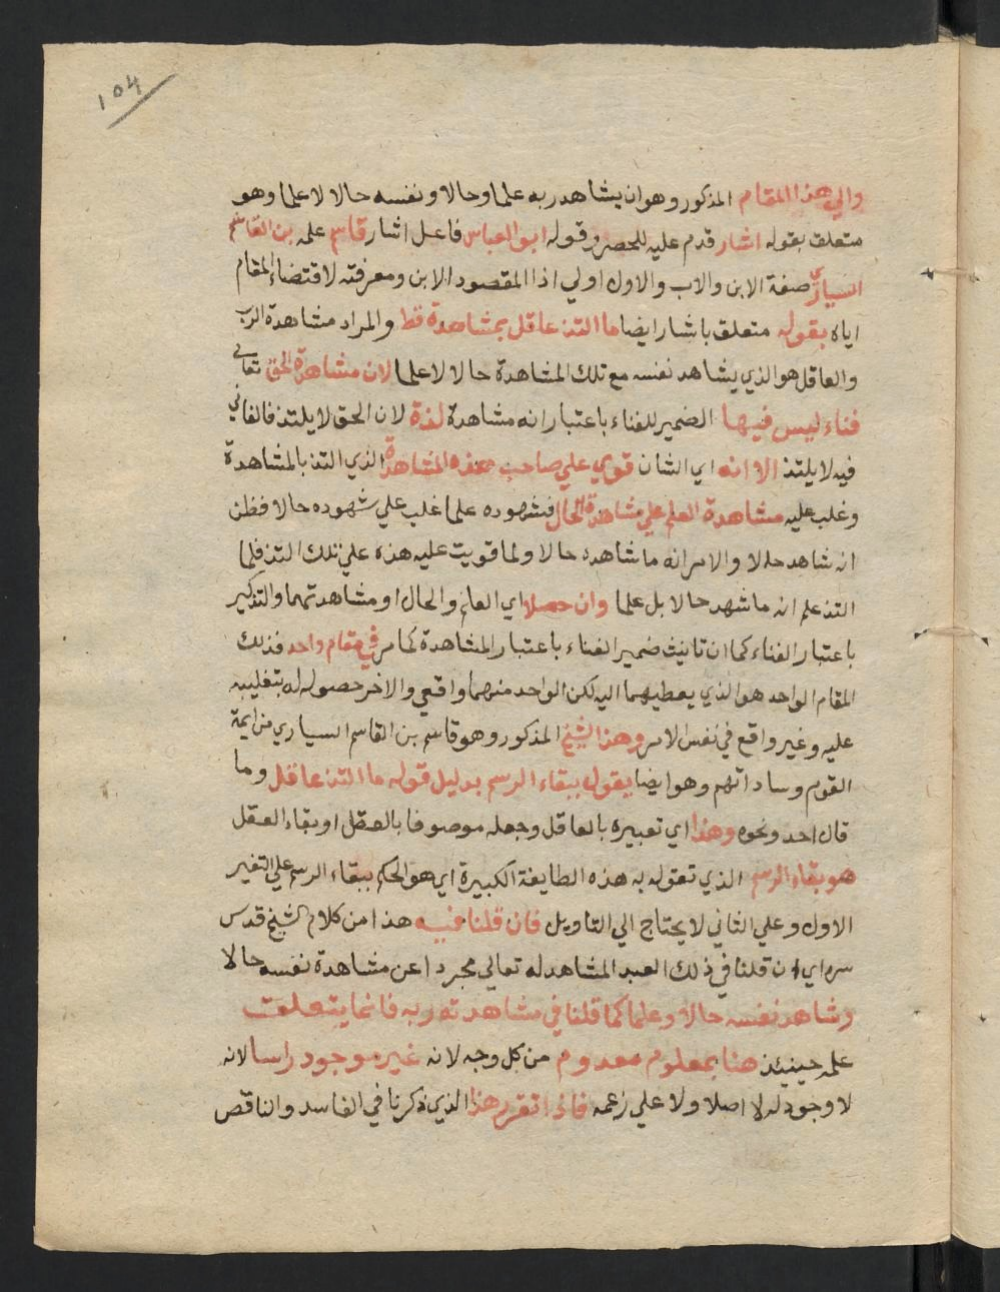 104
والي هذا المقام المذكور وهو ان يشاهد ربه علما وحالا ونفسه حالا لا علما وهو
متعلق بقوله اشار قدم عليه للحصر وقوله ابو العباس فاعل اشار قاسم علم بن القاسم
السياري صفة الابن والاب والاول اولي اذ المقصود الابن ومعرفته لاقتضاء المقام
اياه بقوله متعلق باشار ايضا ما التذ عاقل بمشاهدة قط والمراد مشاهدة الرب
والعاقل هو الذي يشاهد نفسه مع تلك المشاهدة حالا لا علما لان مشاهدة الحق تعالي
فناء ليس فيها الضمير للفناء باعتبار انه مشاهدة لذة لان الحق لا يلتذ فالفاني
فيه لا يلتذ الا انه اي الشان قوي علي صاحب هذه المشاهدة الذي التذ بالمشاهدة
وغلب عليه مشاهدة العلم علي مشاهدة الحال فشهوده علما غلب علي شهوده حالا فظن
انه شاهد حالا والامر انه ما شاهده حالا ولما قويت عليه هذه علي تلك التذ فلما
التذ علم انه ما شهد حالا بل علما وان حصلا اي العلم والحال او مشاهدتهما والتذكير
باعتبار الفناء كما ان تانيث ضمير الفناء باعتبار المشاهدة كما مر في مقام واحد فذلك
المقام الواحد هو الذي يعطيهما اليه لكن الواحد منهما واقعي والاخر حصوله له بتغليبه
عليه وغير واقع في نفس الامر وهذا الشيخ المذكور وهو قاسم بن القاسم السياري من ايمة
القوم وساداتهم وهو ايضا يقول ببقاء الرسم بدليل قوله ما التذ عاقل وما
قال احد ونحوه وهذا اي تعبيره بالعاقل وجعله موصوفا بالعقل او بقاء العقل
هو بقاء الرسم الذي تقول به هذه الطايفة الكبيرة اي هو الحكم ببقاء الرسم علي التغير
الاول وعلي الثاني لا يحتاج الي التاويل فان قلنا فيه هذا من كلام الشيخ قدس
سره اي ان قلنا في ذلك العبد المشاهد له تعالي مجردا عن مشاهدة نفسه حالا
وشاهد نفسه حالا وعلما كما قلنا في مشاهدته ربه فانما يتعلق
علمه حينيذ هنا بمعلوم معدوم من كل وجه لانه غير موجود راسا لانه
لا وجود له لا اصلا ولا علي زعمه فاذا تقرر هذا الذي ذكرنا في الفاسد والناقص